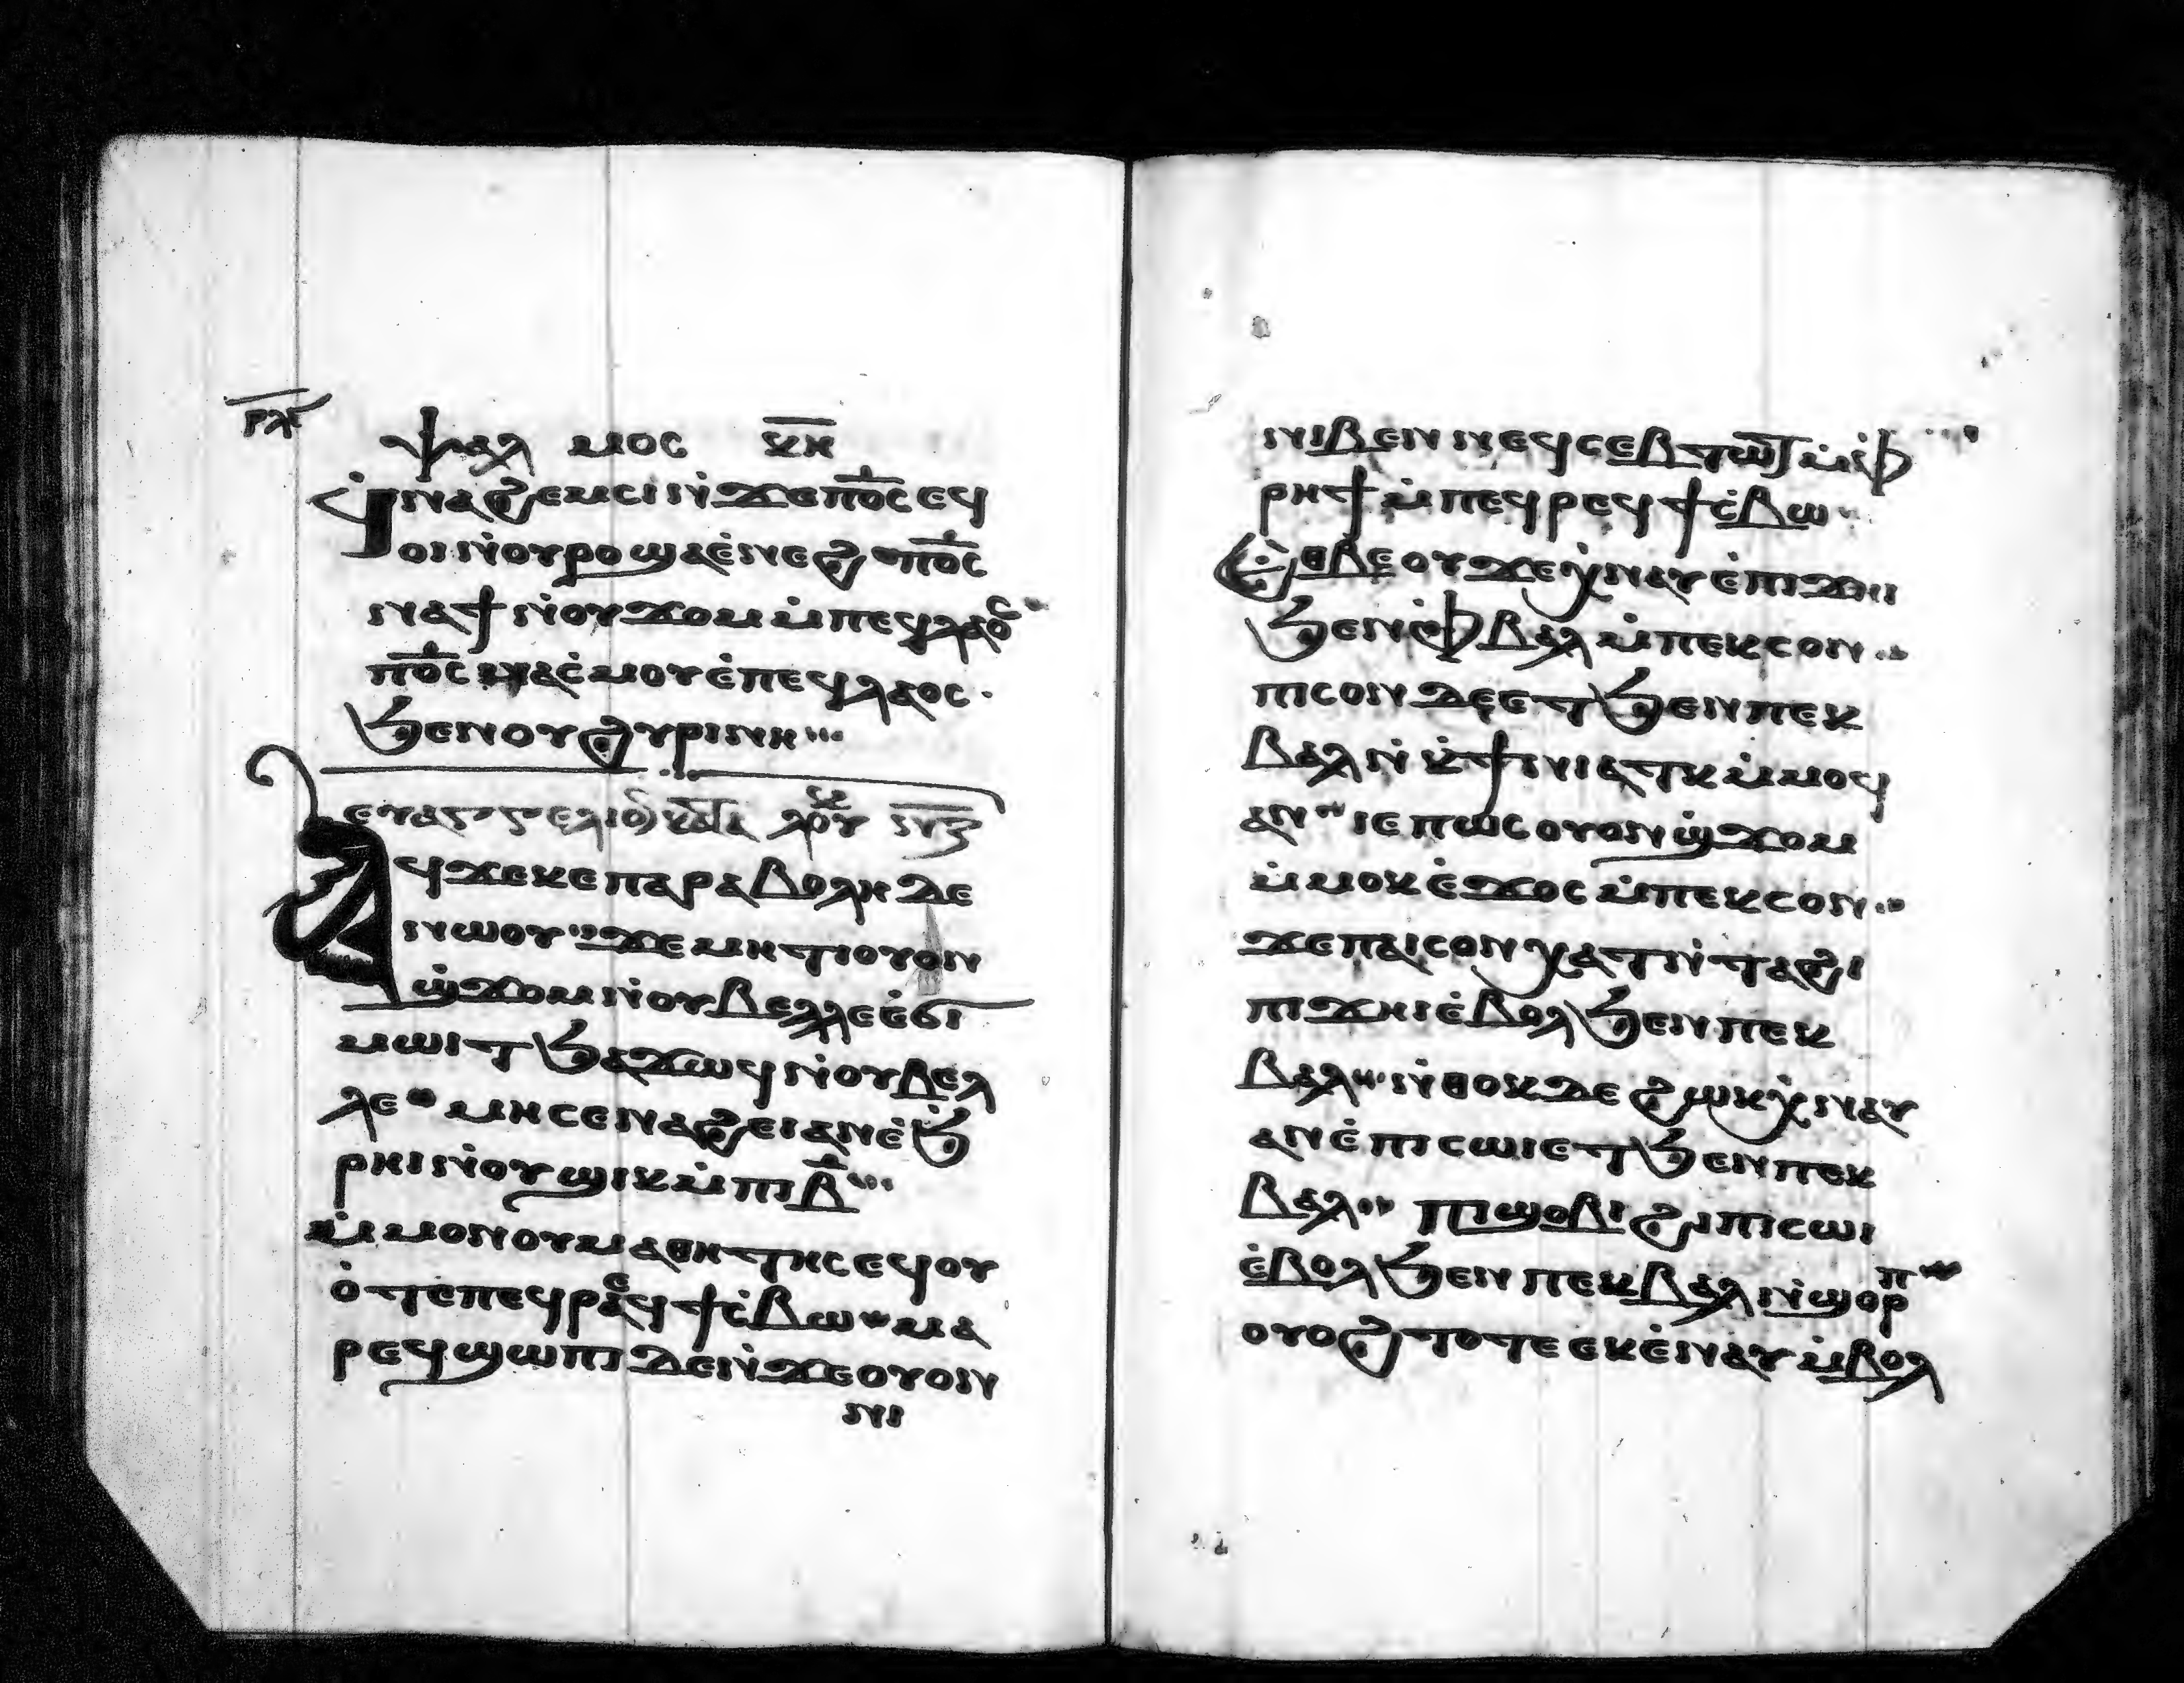 ⲣⲗ̅
ⲯⲁⲗ ⲙⲟⲥ ⲕ̅ⲏ̅
ϥ̇ⲛⲁϩⲉⲙⲥⲓ ⲛ̇ϫⲉⲡⲟ̅ⲥ̅ ⲉϥ
ⲟⲓ ⲛ̇ⲟⲩⲣⲟ ϣⲁⲉ̇ⲛⲉϩ ⲡⲟ̅ⲥ̅
ⲛⲁϯ ⲛ̇ⲟⲩϫⲟⲙ ⲙ̇ⲡⲉϥⲗⲁⲟⲥ
ⲡⲟ̅ⲥ̅ ⲛⲁⲥ̇ⲙⲟⲩ ⲉ̇ⲡⲉϥⲗⲁⲟⲥ.
ϧⲉⲛⲟⲩϩⲩⲣⲓⲛⲏ
ⲉⲩⲁⲅⲅⲉⲗⲓⲟ ⲕⲁⲧⲁ ⲗⲟⲩⲕ ⲛ̅ⲍ̅
ⲁϥϫⲉⲕⲉⲡⲁⲣⲁⲃⲟⲗⲏ ⲇⲉ
ⲛⲱⲟⲩ ϫⲉⲙⲏⲧⲓⲟⲩⲟⲛ
ϣ̇ϫⲟⲙ ⲛ̇ⲟⲩⲃⲉⲗⲗⲉ ⲉ̇ϭⲓ
ⲙⲱⲓⲧ ϧⲁϫⲱϥ ⲛ̇ⲟⲩⲃⲉⲗ
ⲗⲉ ⲙⲏ ⲥⲉⲛⲁϩⲉⲓ ⲁⲛ ⲉ̇ϧ̇
ⲣⲏⲓ ⲛ̇ⲟⲩϣⲓⲕ ⲙ̇ⲡⲓⲃ̅
ⲙ̇ⲙⲟⲛ ⲟⲩⲙⲁⲑⲏⲧⲏⲥ ⲉϥⲟⲩ
ⲟ̇ⲧⲉⲡⲉϥⲣⲉϥϯⲥ̇ⲃⲱ ⲙⲁ
ⲣⲉϥϣⲱⲡⲓ ⲇⲉ ⲛ̇ϫⲉⲟⲩⲟⲛ
ⲛⲓ
ⲛⲓⲃⲉⲛ ⲛⲉϥⲥⲉⲃⲧⲱⲧ ⲙ̇ⲫ̇
ⲣⲏϯ ⲙ̇ⲡⲉϥⲣⲉϥϯⲥ̇ⲃⲱ
ⲉ̇ⲑⲃⲉⲟⲩ ϫⲉ ⲭ̇ⲛⲁⲩ ⲉ̇ⲡⲓϫⲏⲓ
ϧⲉⲛⲫ̇ⲃⲁⲗ ⲙ̇ⲡⲉⲕⲥⲟⲛ
ⲡⲓⲥⲟⲓ ⲇⲉ ⲉⲧϧⲉⲛⲡⲉⲕ
ⲃⲁⲗ ⲛ̇ⲕ̇ϯⲛⲓⲁⲧⲕ ⲙ̇ⲙⲟϥ
ⲁⲛ ⲓⲉ ⲡⲱⲥ ⲟⲩⲟⲛϣ̇ϫⲟⲙ
ⲙ̇ⲙⲟⲕ ⲉ̇ϫⲟⲥ ⲙ̇ⲡⲉⲕⲥⲟⲛ
ϫⲉⲡⲁⲓⲥⲟⲛ ⲭⲁⲧ ⲛ̇ⲧⲁϩⲓ
ⲡⲓϫⲏⲓ ⲉ̇ⲃⲟⲗϧⲉⲛⲡⲉⲕ
ⲃⲁⲗ ⲛ̇ⲑⲟⲕ ⲇⲉ ϩⲱⲕ ⲭ̇ⲛⲁⲩ
ⲁⲛ ⲉ̇ⲡⲓⲥⲱⲓ ⲉⲧϧⲉⲛⲡⲉⲕ
ⲃⲁⲗ ⲡⲓϣⲟⲃⲓ ϩⲓ ⲡⲓⲥⲱⲓ
ⲉ̇ⲃⲟⲗϧⲉⲛ ⲡⲉⲕⲃⲁⲗ ⲛ̇ϣⲟⲣⲡ
ⲟⲩⲟϩ ⲧⲟⲧⲉ ⲉⲕⲉ̇ⲛⲁⲩ ⲙ̇ⲃⲟⲗ